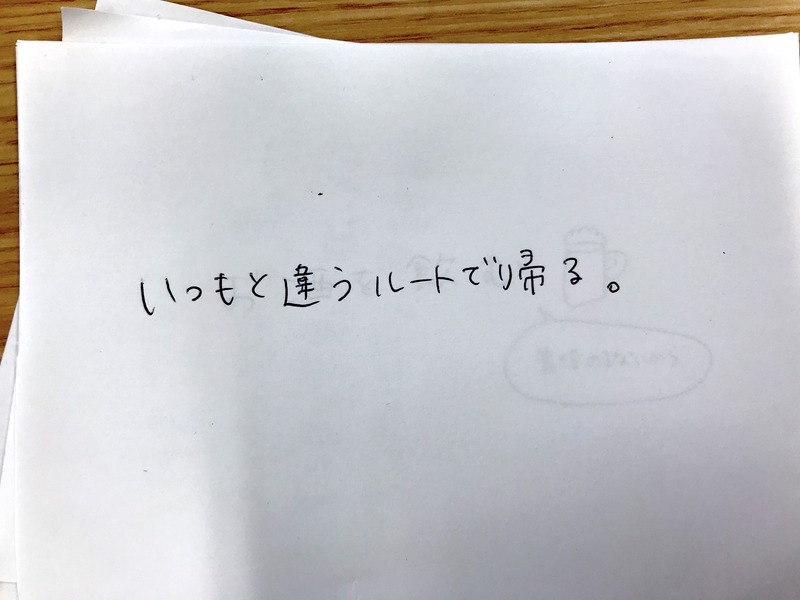 いつもと違うルートで帰る。